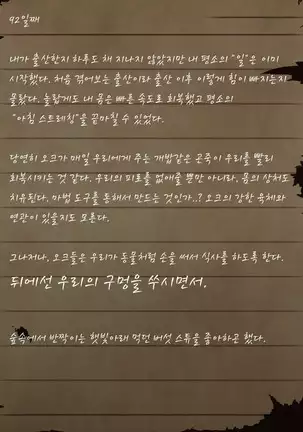 92일째
내가 출산한지 하루도 채 지나지 않았지만 내 평소의 "일"은 이미
시작했다. 처음 겪어보는 출산이라 출산 이후 이렇게 힘이 빠지는지
몰랐다. 놀랍게도 내 몸은 빠른 속도로 회복했고 평소의
"아침 스트레칭"을 끝마칠 수 있었다.
당연히 오크가 매일 우리에게 주는 개밥같은 곤죽이 우리를 빨리
회복시키는 것 같다. 우리의 피로를 없애줄 뿐만 아니라, 몸의 상처도
치유된다. 마법 도구를 통해서 만드는 것인가..? 오크의 강한 육체와
연관이 있을지도 모른다.
그나저나, 오크들은 우리가 동물처럼 손을 써서 식사를 하도록 한다.
뒤에선 우리의 구멍을 쑤시면서.
숲속에서 반짝이는 햇빛아래 먹던 버섯 스튜를 좋아하곤 했다.